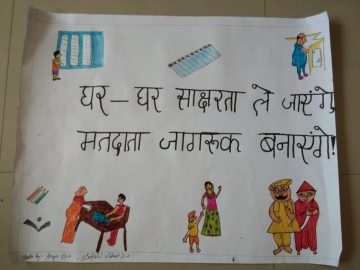 घर - घर साक्षरता ले जाएंगे,
मतदाता जागरूक बनाएंगे!
Made by:-